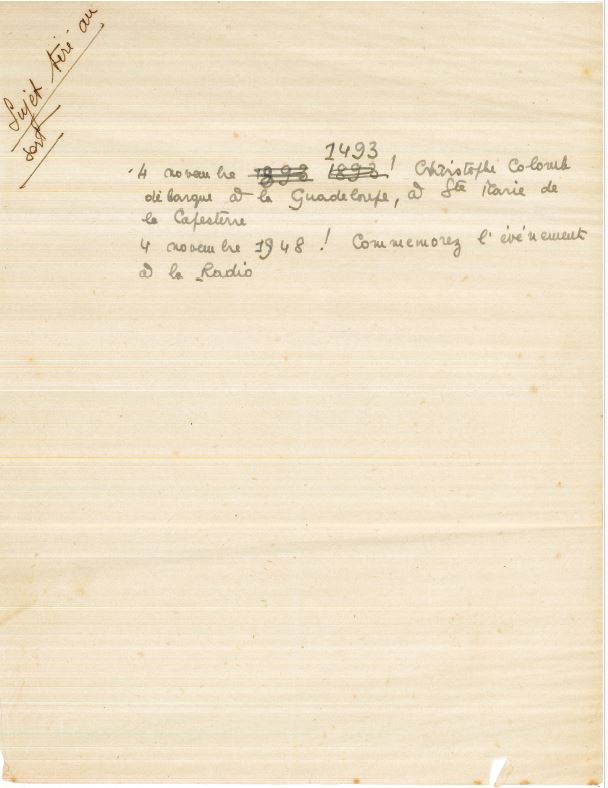 Sujet tiré au
sort
4 novembre 1893 1893 1493 ! Christophe Colomb
débarque à la Guadeloupe, à Ste Marie de
la Capesterre
4 novembre 1948 ! Commemorez l'événement
à la Radio